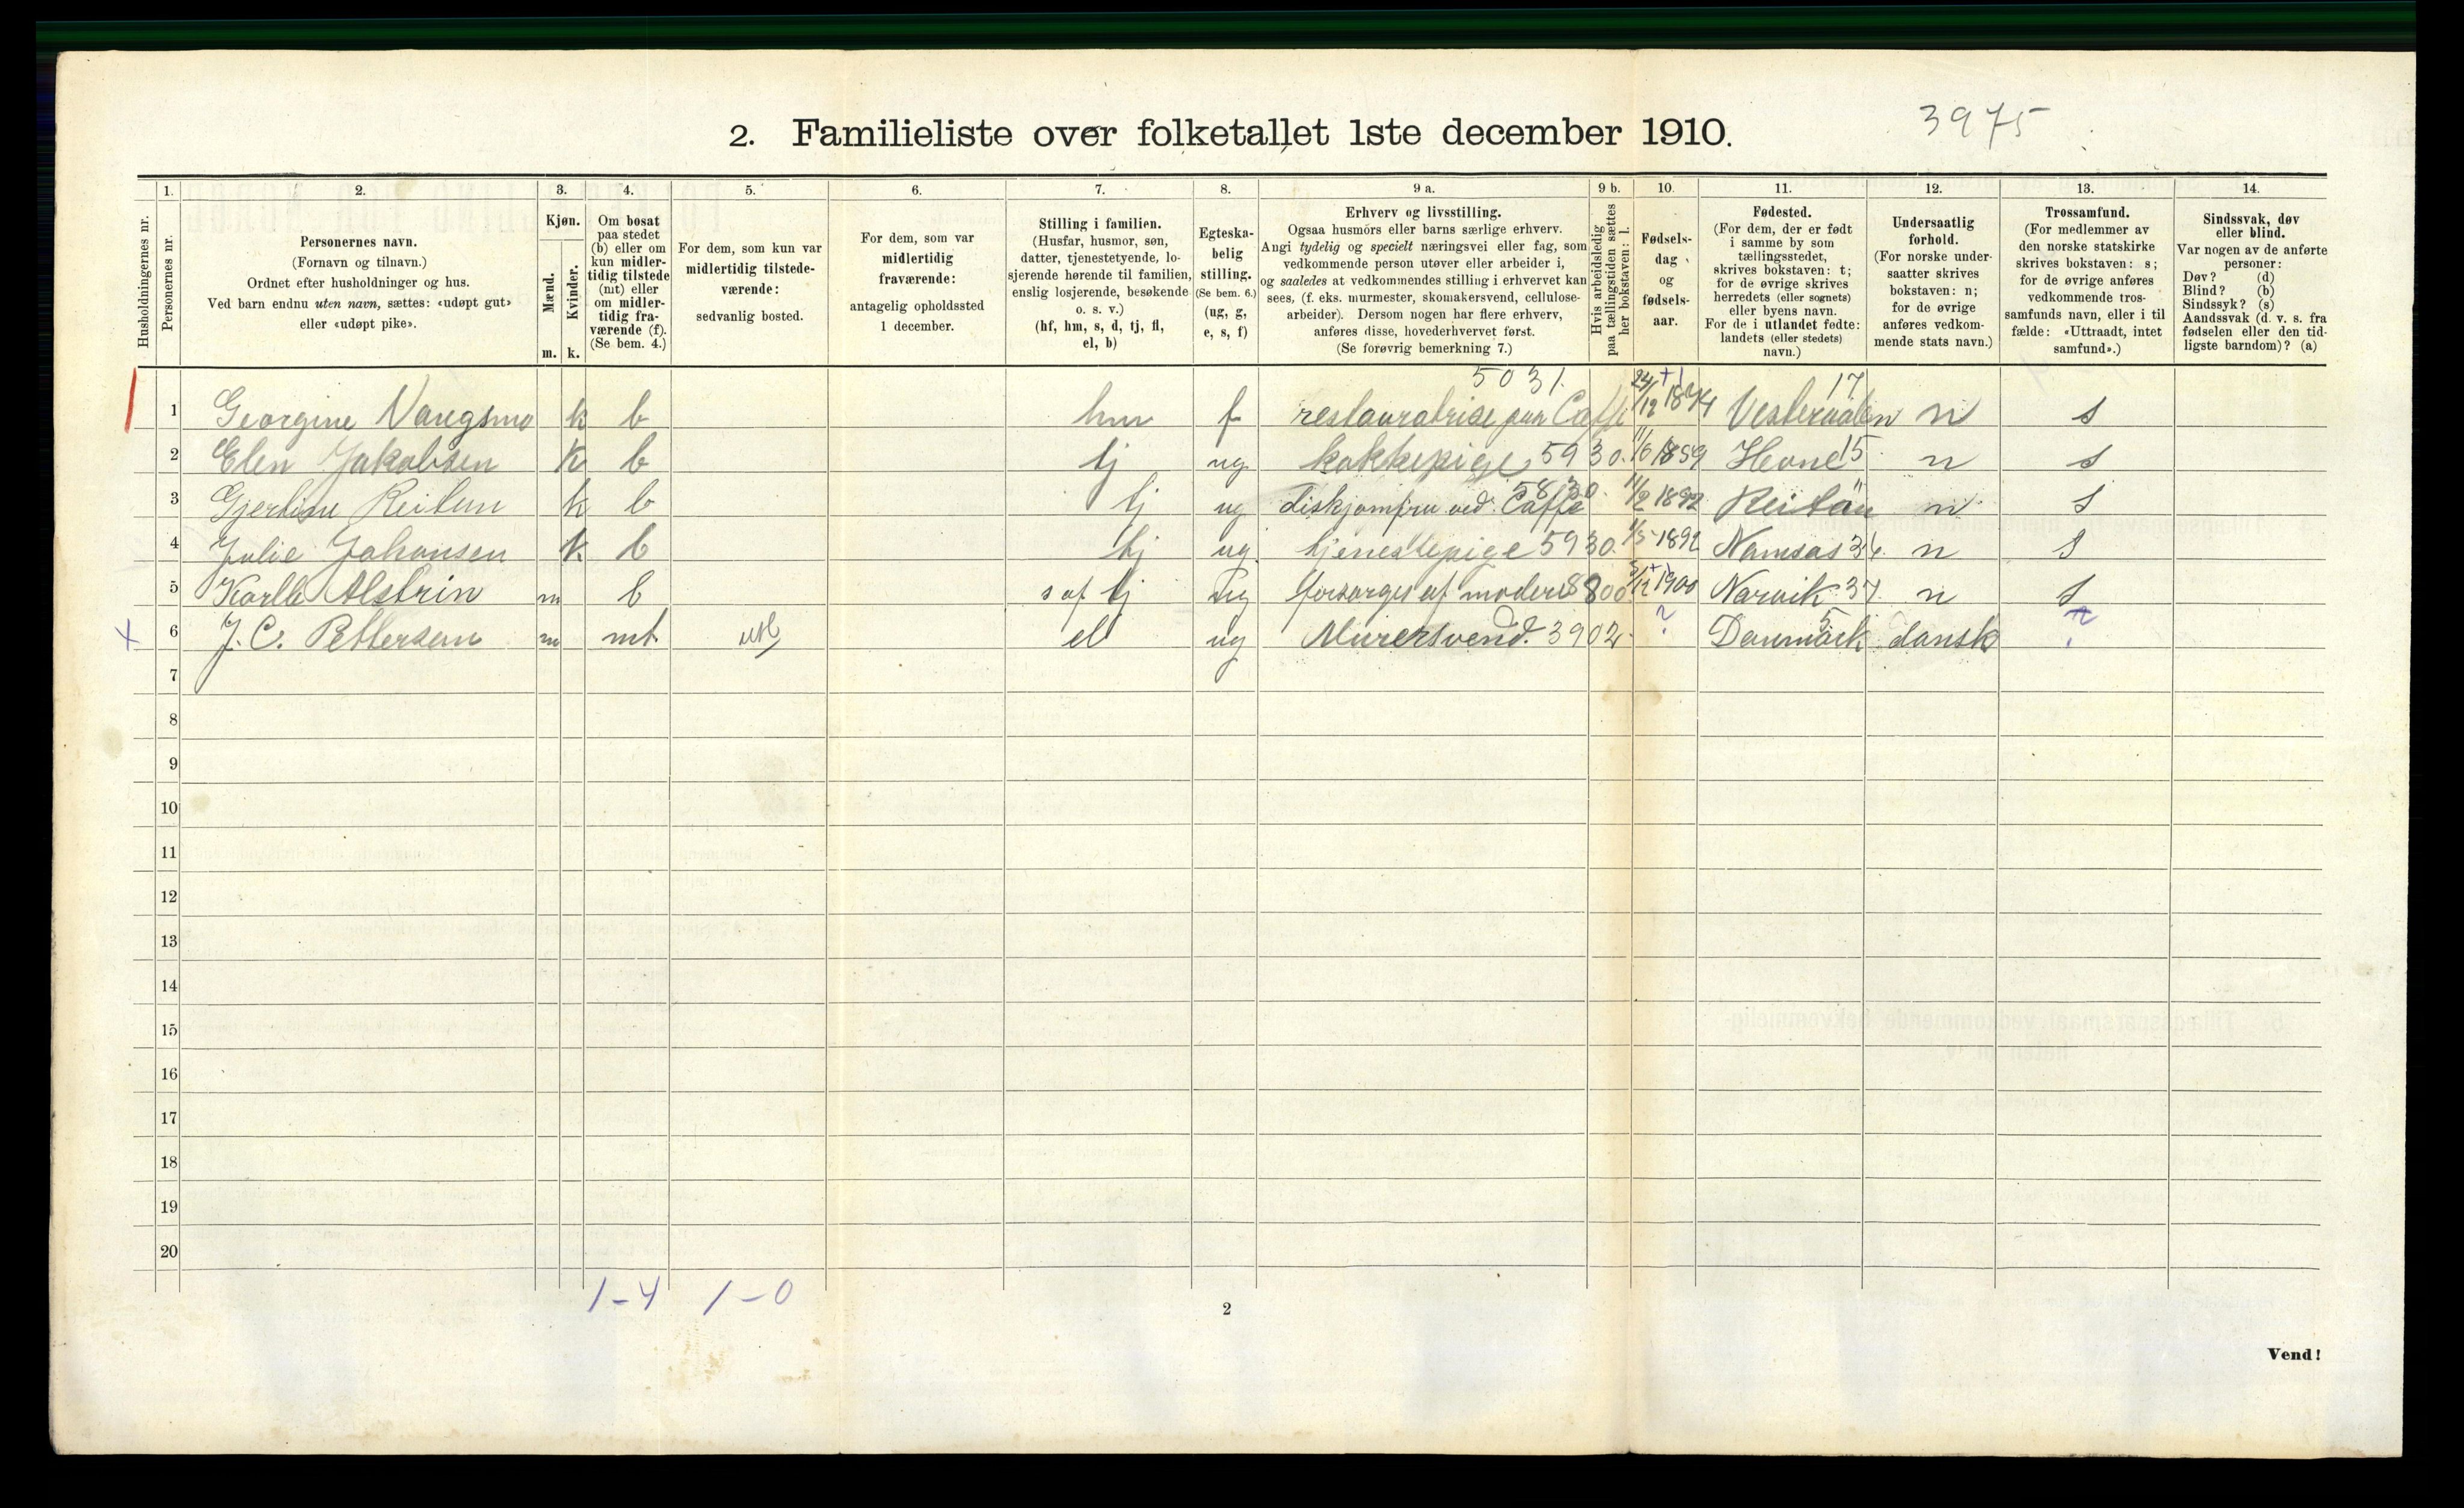 3975
2. Familieliste over folketallet 1ste december 1910.
1. 2. 3. 4. 5. 6. 7. 8. 9 a. 9 b. 10. 11. 12. 13. 14.
Husholdningernes nr.
Personernes nr.
Personernes navn.
(Fornavn og tilnavn.)
Ordnet efter husholdninger og hus.
Ved barn endnu uten navn, sættes: «udøpt gut»
eller «udøpt pike».
Kjøn.
Mænd.
Kvinder.
m. k.
Om bosat
paa stedet
(b) eller om
kun midler-
tidig tilstede
(mt) eller
om midler-
tidig fra-
værende (f).
(Se bem. 4.)
For dem, som kun var
midlertidig tilstede-
værende:
sedvanlig bosted.
For dem, som var
midlertidig
fraværende:
antagelig opholdssted
1 december.
Stilling i familien.
(Husfar, husmor, søn,
datter, tjenestetyende, lo-
sjerende hørende til familien,
enslig losjerende, besøkende
o. s. v.)
(hf, hm, s, d, tj, fl,
el, b)
Egteska-
belig
stilling.
(Se bem. 6.)
(ug, g,
e, s, f)
Erhverv og livsstilling.
Ogsaa husmors eller barns særlige erhverv.
Angi tydelig og specielt næringsvei eller fag, som
vedkommende person utøver eller arbeider i,
og saaledes at vedkommendes stilling i erhvervet kan
sees, (f. eks. murmester, skomakersvend, cellulose-
arbeider). Dersom nogen har flere erhverv,
anføres disse, hovederhvervet først.
(Se forøvrig bemerkning 7.)
Hvis arbeidsledig
paa tællingstiden sættes
her bokstaven: l.
Fødsels-
dag
og
fødsels-
aar.
Fødested.
(For dem, der er født
i samme by som
tællingsstedet,
skrives bokstaven: t;
for de øvrige skrives
herredets (eller sognets)
eller byens navn.
For de i utlandet fødte:
landets (eller stedets)
navn.)
Undersaatlig
forhold.
(For norske under-
saatter skrives
bokstaven: n;
for de øvrige
anføres vedkom-
mende stats navn.)
Trossamfund.
(For medlemmer av
den norske statskirke
skrives bokstaven: s;
for de øvrige anføres
vedkommende tros-
samfunds navn, eller i til
fælde: «Uttraadt, intet
samfund».)
Sindssvak, døv
eller blind.
Var nogen av de anførte
personer:
Døv? (d)
Blind? (b)
Sindssyk? (s)
Aandssvak (d. v. s. fra
fødselen eller den tid-
ligste barndom)? (a)
5031. 17
1 Georgine Vangsmo k b hm f restauratrise paa Caffe 24/12 Vesteraalen n s
2 Elen Jakobsen k b tj ug kokkepige 5930. 11/6 1859 Hevne 15 n s
5830.
3 Gjertine Reitan k b tj ug diskjomfru ved Caffe 11/2 1892 Reitan n s
4 Julie Johansen k b tj ug tjenestepige 5930. 1/5 1892 Namsos n s
5 Karlb Alstrin m b s af tj ug forsorges af moderen 8800 5/12 1900 Narvik 37. n s
x 6 J. C. Pettersen m mt utl el ug Murersvend. 3902. ? Danmark 5 dansk ?
7
8
9
10
11
12
13
14
15
16
17
18
19
20
1-4 1-0
2
Vend!